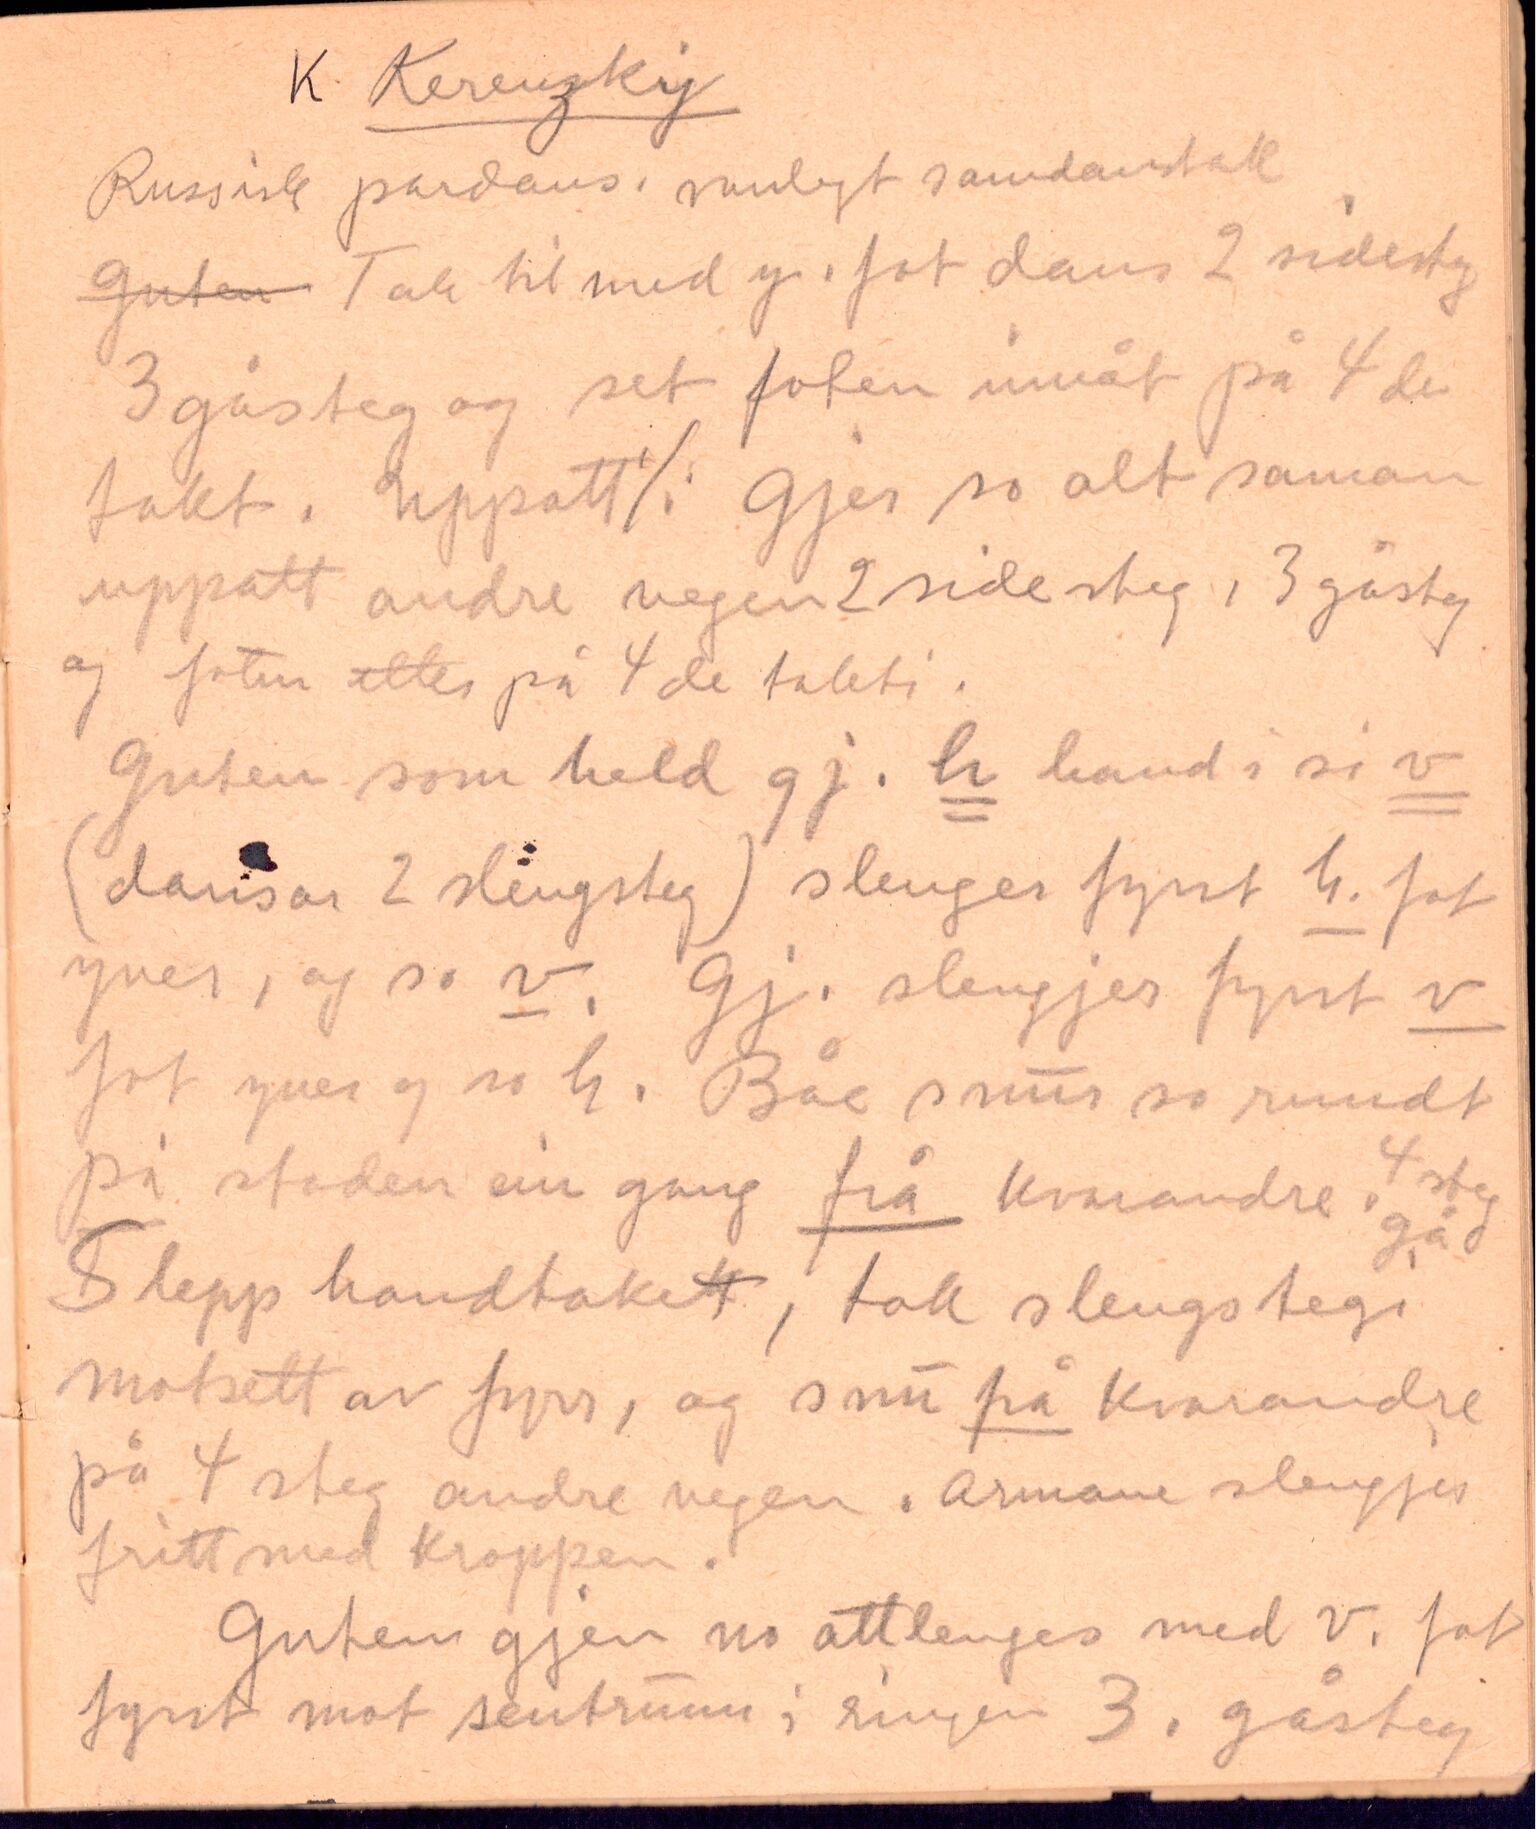 K. Kerenzkij
Russisk pardans. vanlegt samdanstak
Guten Tak til med y. fot dans 2 sidesteg
3 gåsteg og set foten innåt på 4 de
takt. Uppatt /: Gjer so alt saman
uppatt andre vegen 2 side steg, 3 gåsteg
og foten etter på 4 de takti.
Guten som held gj. h hand i si v
(dansar 2 slengsteg) slenger fyrst h. fot
yver, og so v. Gj. slengjer fyrst v
fot yver og so h. Båe snur so rundt
på staden ein gang frå kvarandre. 4 steg
gå
Slepp handtaket, tak slengstegi
motsett av fyrr, og snu på kvarandre
på 4 steg andre vegen. Armane slengjer
fritt med kroppen.
Guten gjen no attlenges med v. fot
fyrst mot sentrum i ringen 3. gåsteg